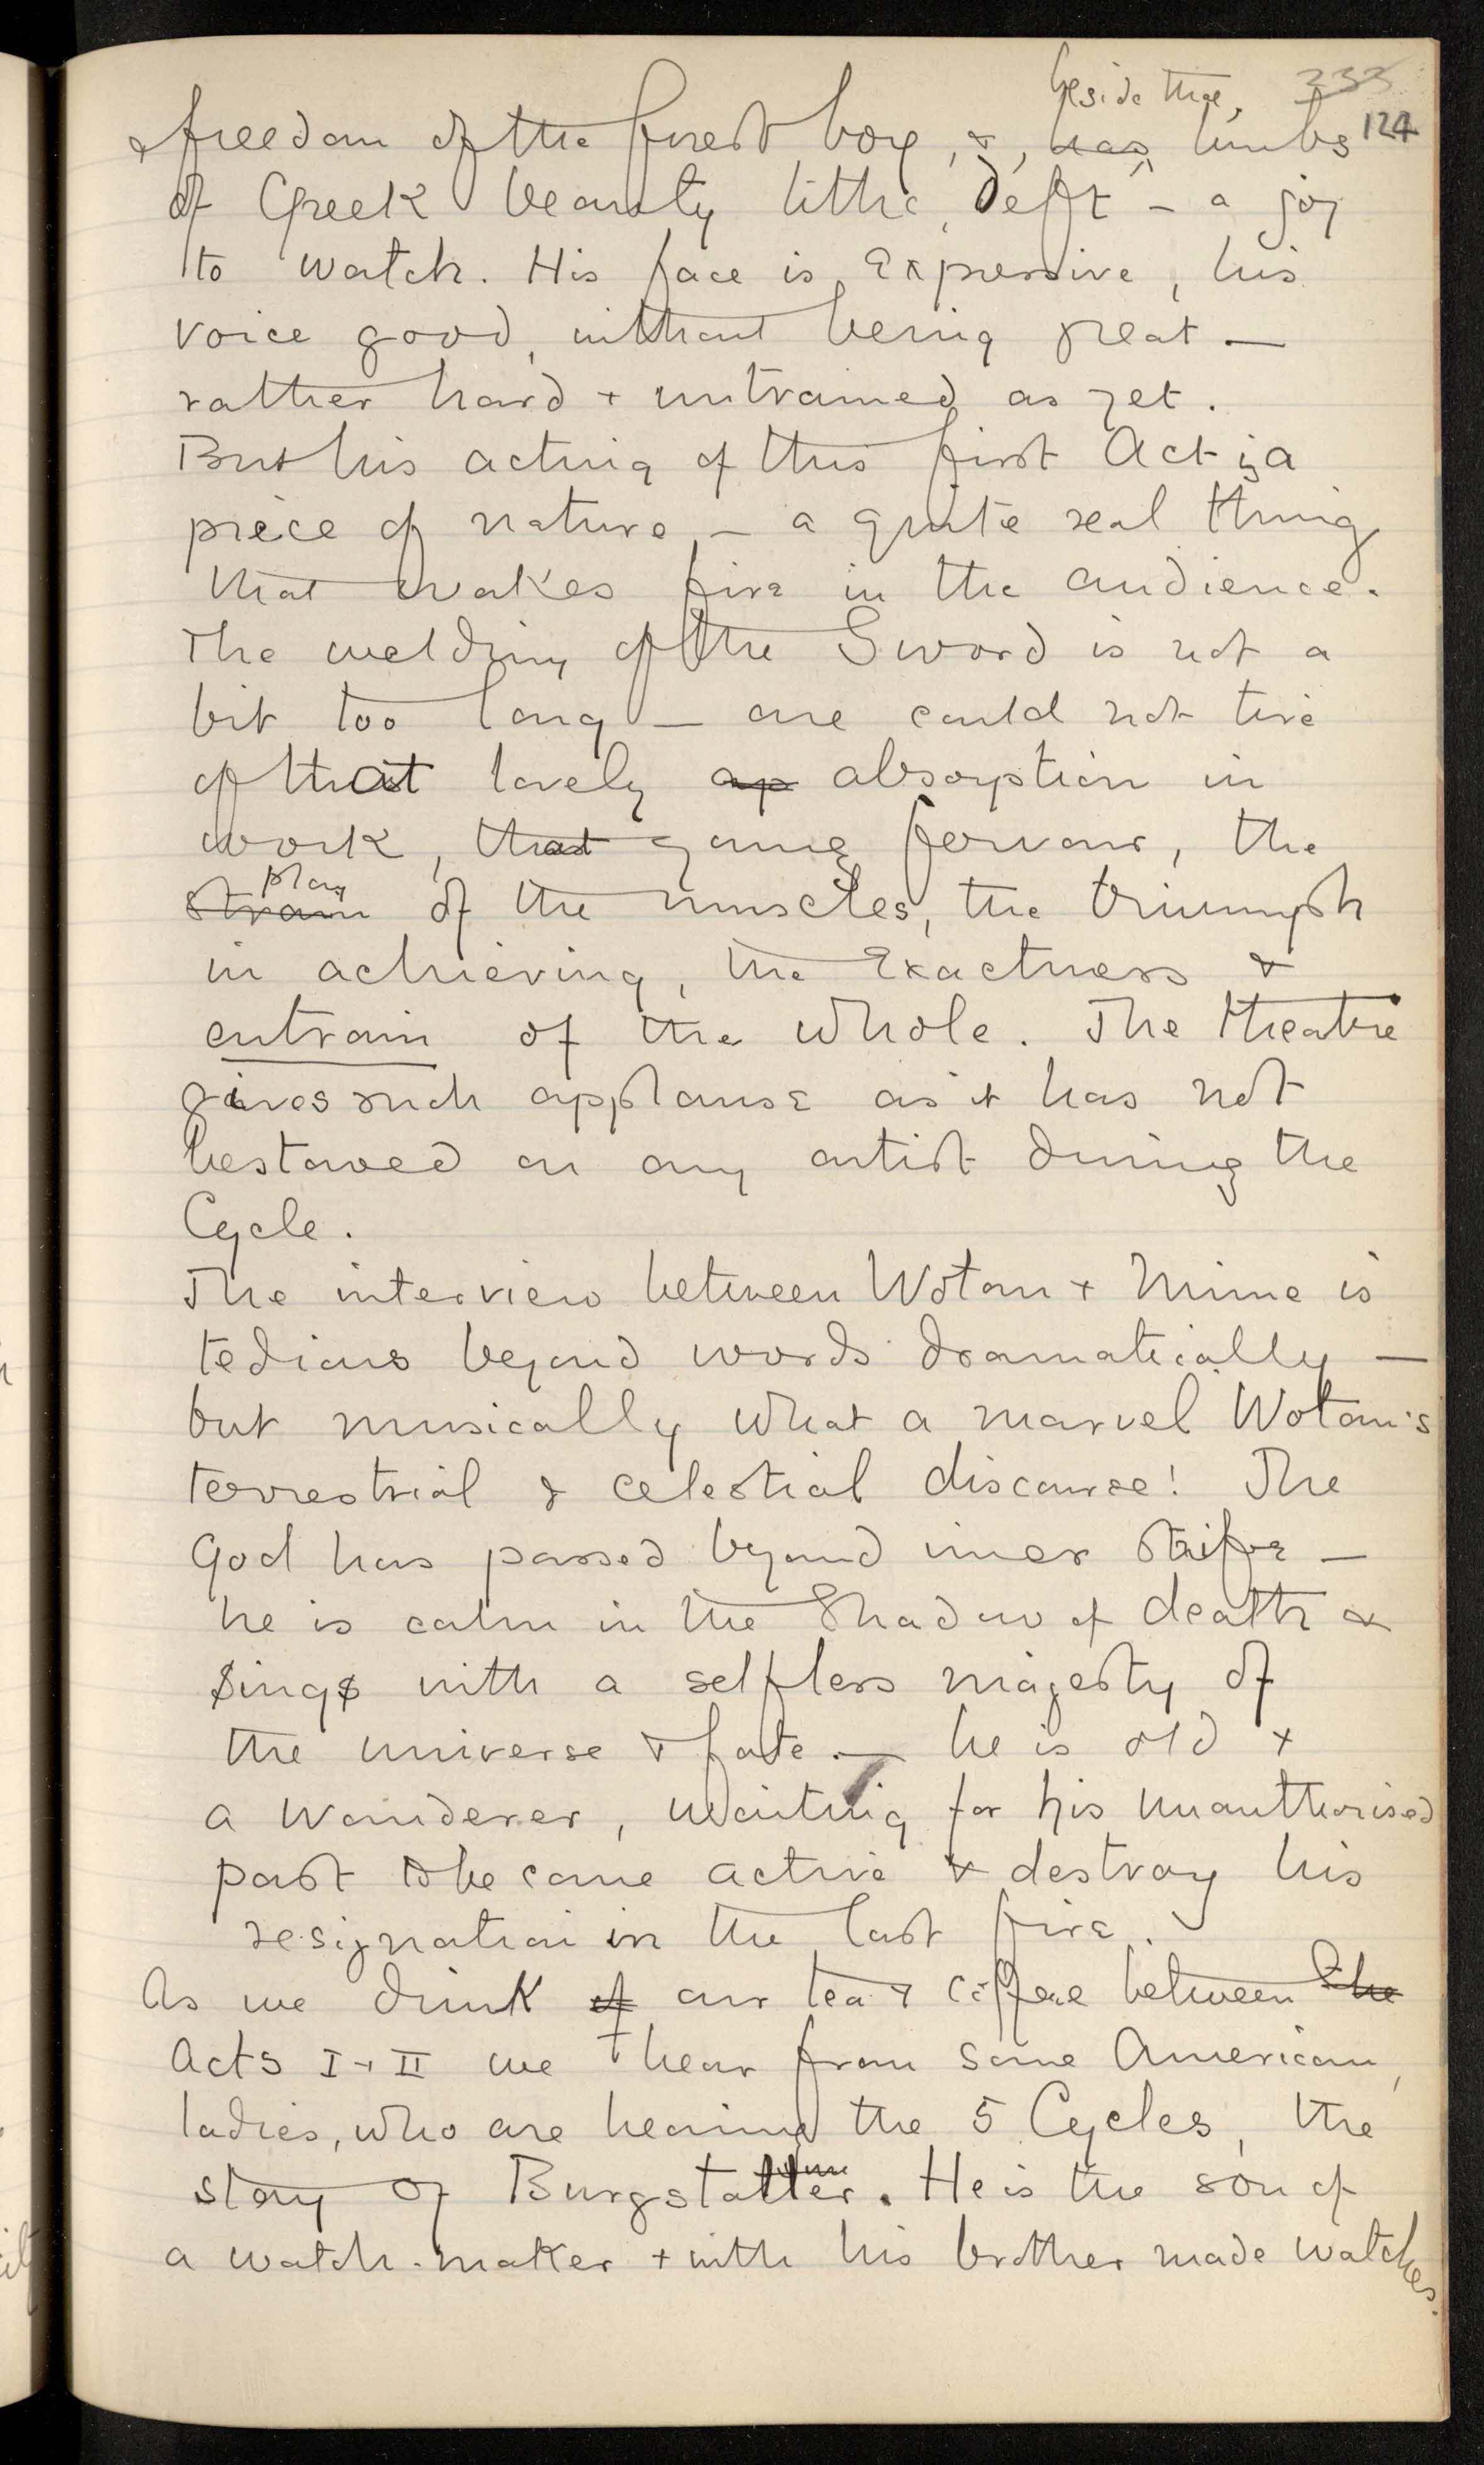 beside this, 233
& freedom of the forest boy, &, has, limbs 124
of Greek beauty lithe, deft – a joy
to watch. His face is expressive, his
voice good, without being great —
rather hard + untrained as yet.
But his acting of this first Act is a
piece of nature, – a quite real thing
that wakes fire in the audience.
The welding of the Sword is not a
bit too long — one could not tire
of that lovely ap absorption in
work, that young fervour, the
play
strain of the muscles, the triumph
in achieving, the exactness &
entrain of the whole. The theatre
gives such applause as it has not
bestowed on any artist during the
Cycle.
The interview between Wotan + Mime is
tedious beyond words dramatically —
but musically what a marvel Wotan's
terrestrial & celestial discourse! The
God has passed beyond inner strife —
he is calm in the Shadow of death &
sings with a selfless majesty of
the universe & fate. — he is old +
a Wanderer, waiting for his unauthorised
past to become active & destroy his
resignation in the last fire.
As we drink of our tea & coffee between the
Acts I + II we hear from some American
ladies, who are hearing the 5 Cycles, the
story of Burgstaller. He is the son of
a watch-maker + with his brother made watches.